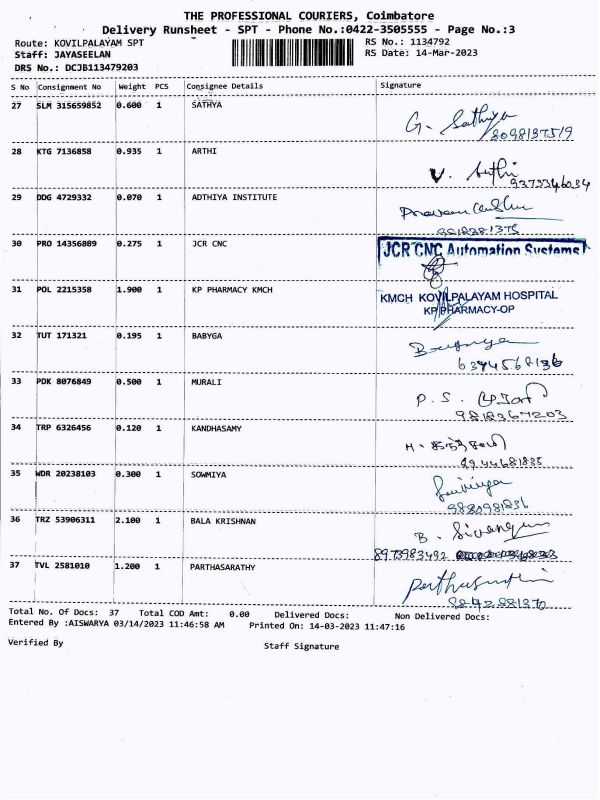 THE PROFESSIONAL COURIERS, Coimbatore
Delivery Runsheet - SPT - Phone No.:0422-3505555 - Page No.:3
Route: KOVILPALAYAM SPT RS No.: 1134792
Staff: JAYASEELAN RS Date: 14-Mar-2023
DRS No.: DCJB113479203
S No Consignment No Weight PCS Consignee Details Signature
27 SLM 315659852 0.600 1 SATHYA G. Sathya
8098137519
28 KTG 7136858 0.935 1 ARTHI V. Arthi
9373346034
29 DDG 4729332 0.070 1 ADTHIYA INSTITUTE
30 PRO 14356889 0.275 1 JCR CNC JCR CNC Automation Systems
31 POL 2215358 1.900 1 KP PHARMACY KMCH KMCH KOVILPALAYAM HOSPITAL
KP PHARMACY-OP
32 TUT 171321 0.195 1 BABYGA
6394568136
33 PDK 8076849 0.500 1 MURALI P. S.
9818367203
34 TRP 6326456 0.120 1 KANDHASAMY
8944681835
35 WDR 20238103 0.300 1 SOWMIYA
9880981231
36 TRZ 53906311 2.100 1 BALA KRISHNAN B.
8973983492
37 TVL 2581010 1.200 1 PARTHASARATHY
Total No. Of Docs: 37 Total COD Amt: 0.00 Delivered Docs: Non Delivered Docs:
Entered By :AISWARYA 03/14/2023 11:46:58 AM Printed On: 14-03-2023 11:47:16
Verified By Staff Signature